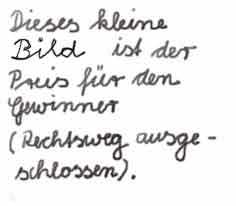 Dieses kleine
Bild ist der
Preis für den
Gewinner
(Rechtsweg ausge-
schlossen).